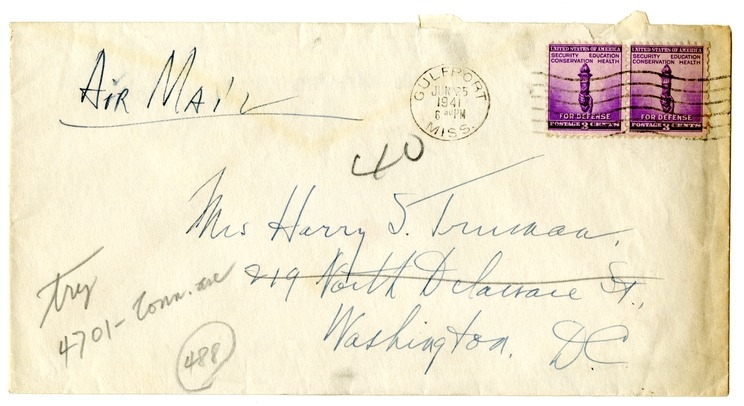 Air Mail
GULFPORT
JUN 25
1941
6 PM
MISS.
UNITED STATES OF AMERICA
SECURITY EDUCATION
CONSERVATION HEALTH
FOR DEFENSE
POSTAGE 3 CENTS
UNITED STATES OF AMERICA
SECURITY EDUCATION
CONSERVATION HEALTH
FOR DEFENSE
POSTAGE 3 CENTS
40
Mrs Harry S. Truman,
219 North Delaware St.,
Washington, DC.
try
4701 - Conn. ave
488